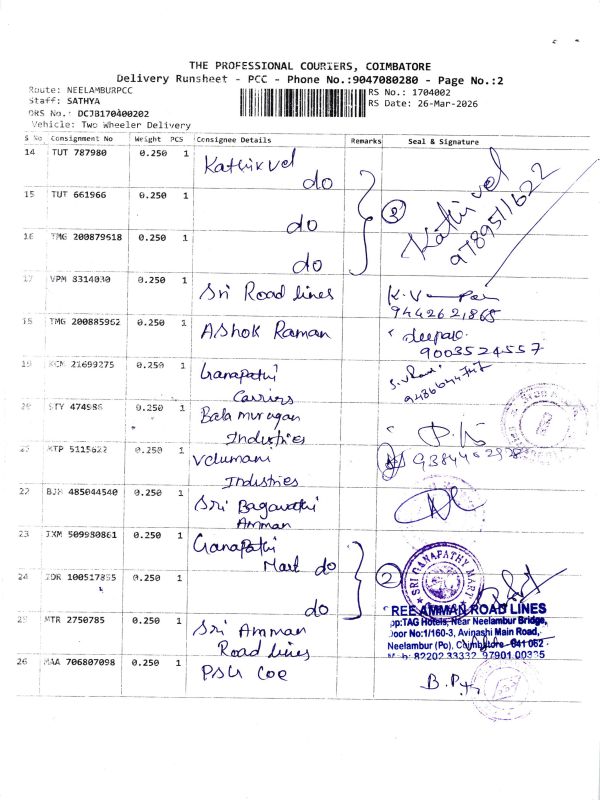 THE PROFESSIONAL COURIERS, COIMBATORE
Delivery Runsheet - PCC - Phone No.:9047080280 - Page No.:2
Route: NEELAMBURPCC
Staff: SATHYA
DRS No.: DCJB170400202
Vehicle: Two Wheeler Delivery
RS No.: 1704002
RS Date: 26-Mar-2026
S No Consignment No Weight PCS Consignee Details Remarks Seal & Signature
14 TUT 787980 0.250 1 Kathirvel do
Kathivel
9789511622
15 TUT 661966 0.250 1 do
3
16 TMG 200879618 0.250 1 do
17 VPM 8314030 0.250 1 Sri Road lines
9442621865
18 TMG 200885962 0.250 1 Ashok Raman
deepa
9003524557
19 KCM 21699275 0.250 1 Ganapathi Carriers
20 STY 474986 0.250 1 Balamurugan Industries
21 KTP 5115622 0.250 1 Velumani Industries
22 BJH 485044540 0.250 1 Sri Bagavathi Amman
23 IXM 509980861 0.250 1 Ganapathi Mart do
2
SRI GANAPATHY MART
24 IDR 100517855 0.250 1 do
25 MTR 2750785 0.250 1 Sri Amman Road lines
REE AMMAN ROAD LINES
pp:TAG Hotels, Near Neelambur Bridge,
Door No:1/160-3, Avinashi Main Road,
Neelambur (Po), Coimbatore - 641 062
82202 33332, 97901 00335
26 MAA 706807098 0.250 1 PSG COE